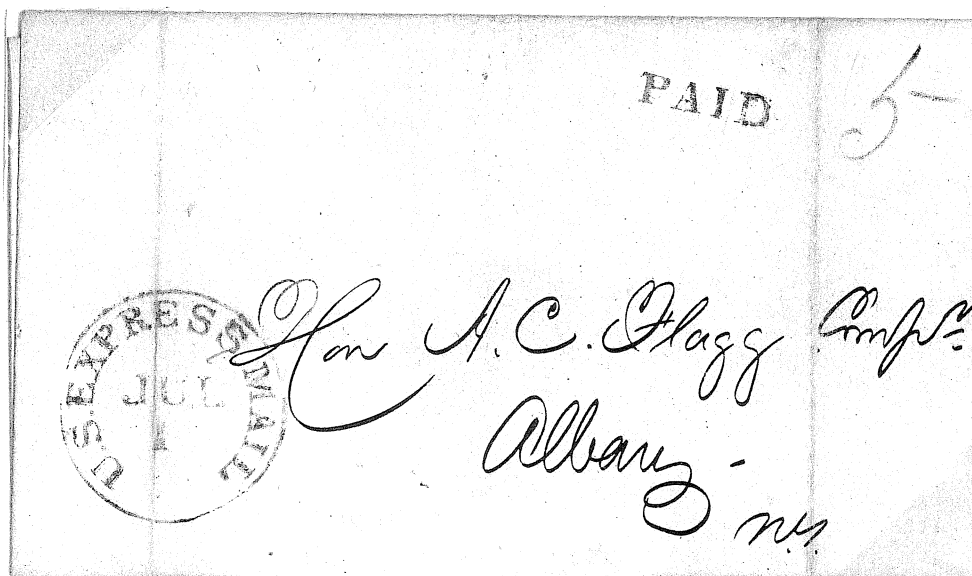 PAID 5
U.S. EXPRESS MAIL
JUL
1
Hon A. C. Flagg Compr.
Albany -
N.Y.